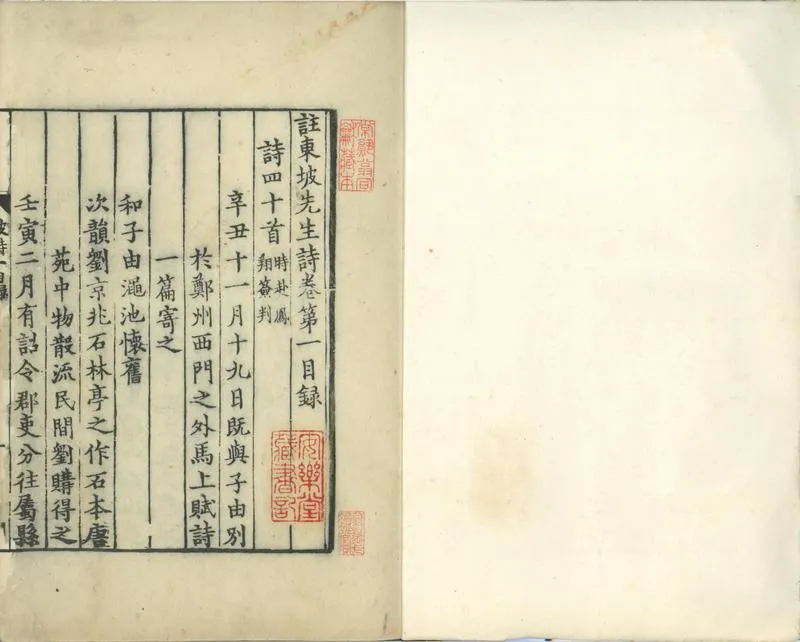 註東坡先生詩卷第一目録
詩四十首
時赴鳳
翔簽判
辛丑十一月十九日既與子由別
於鄭州西門之外馬上賦詩
一篇寄之
和子由澠池懷舊
次韻劉京兆石林亭之作石本唐
苑中物散流民間劉購得之
壬寅二月有詔令郡吏分往屬縣
安樂堂
藏書記